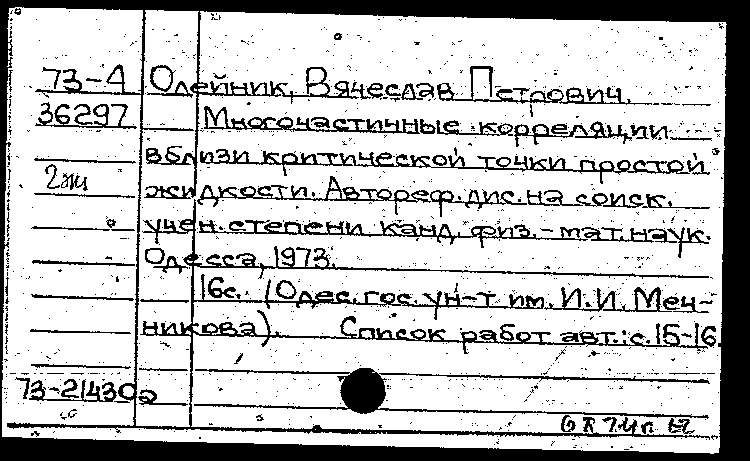 73-4 Олейник, Вячеслав Петрович.
36297 Многочастичные корреляции
вблизи критической точки простой
2 экз жидкости. Автореф. дис. на соиск.
учен. степени канд. физ.-мат. наук.
Одесса, 1973.
16с. (Одес. гос. ун-т им. И.И. Меч-
никова). Список работ авт.: с.15-16.
73-21430а